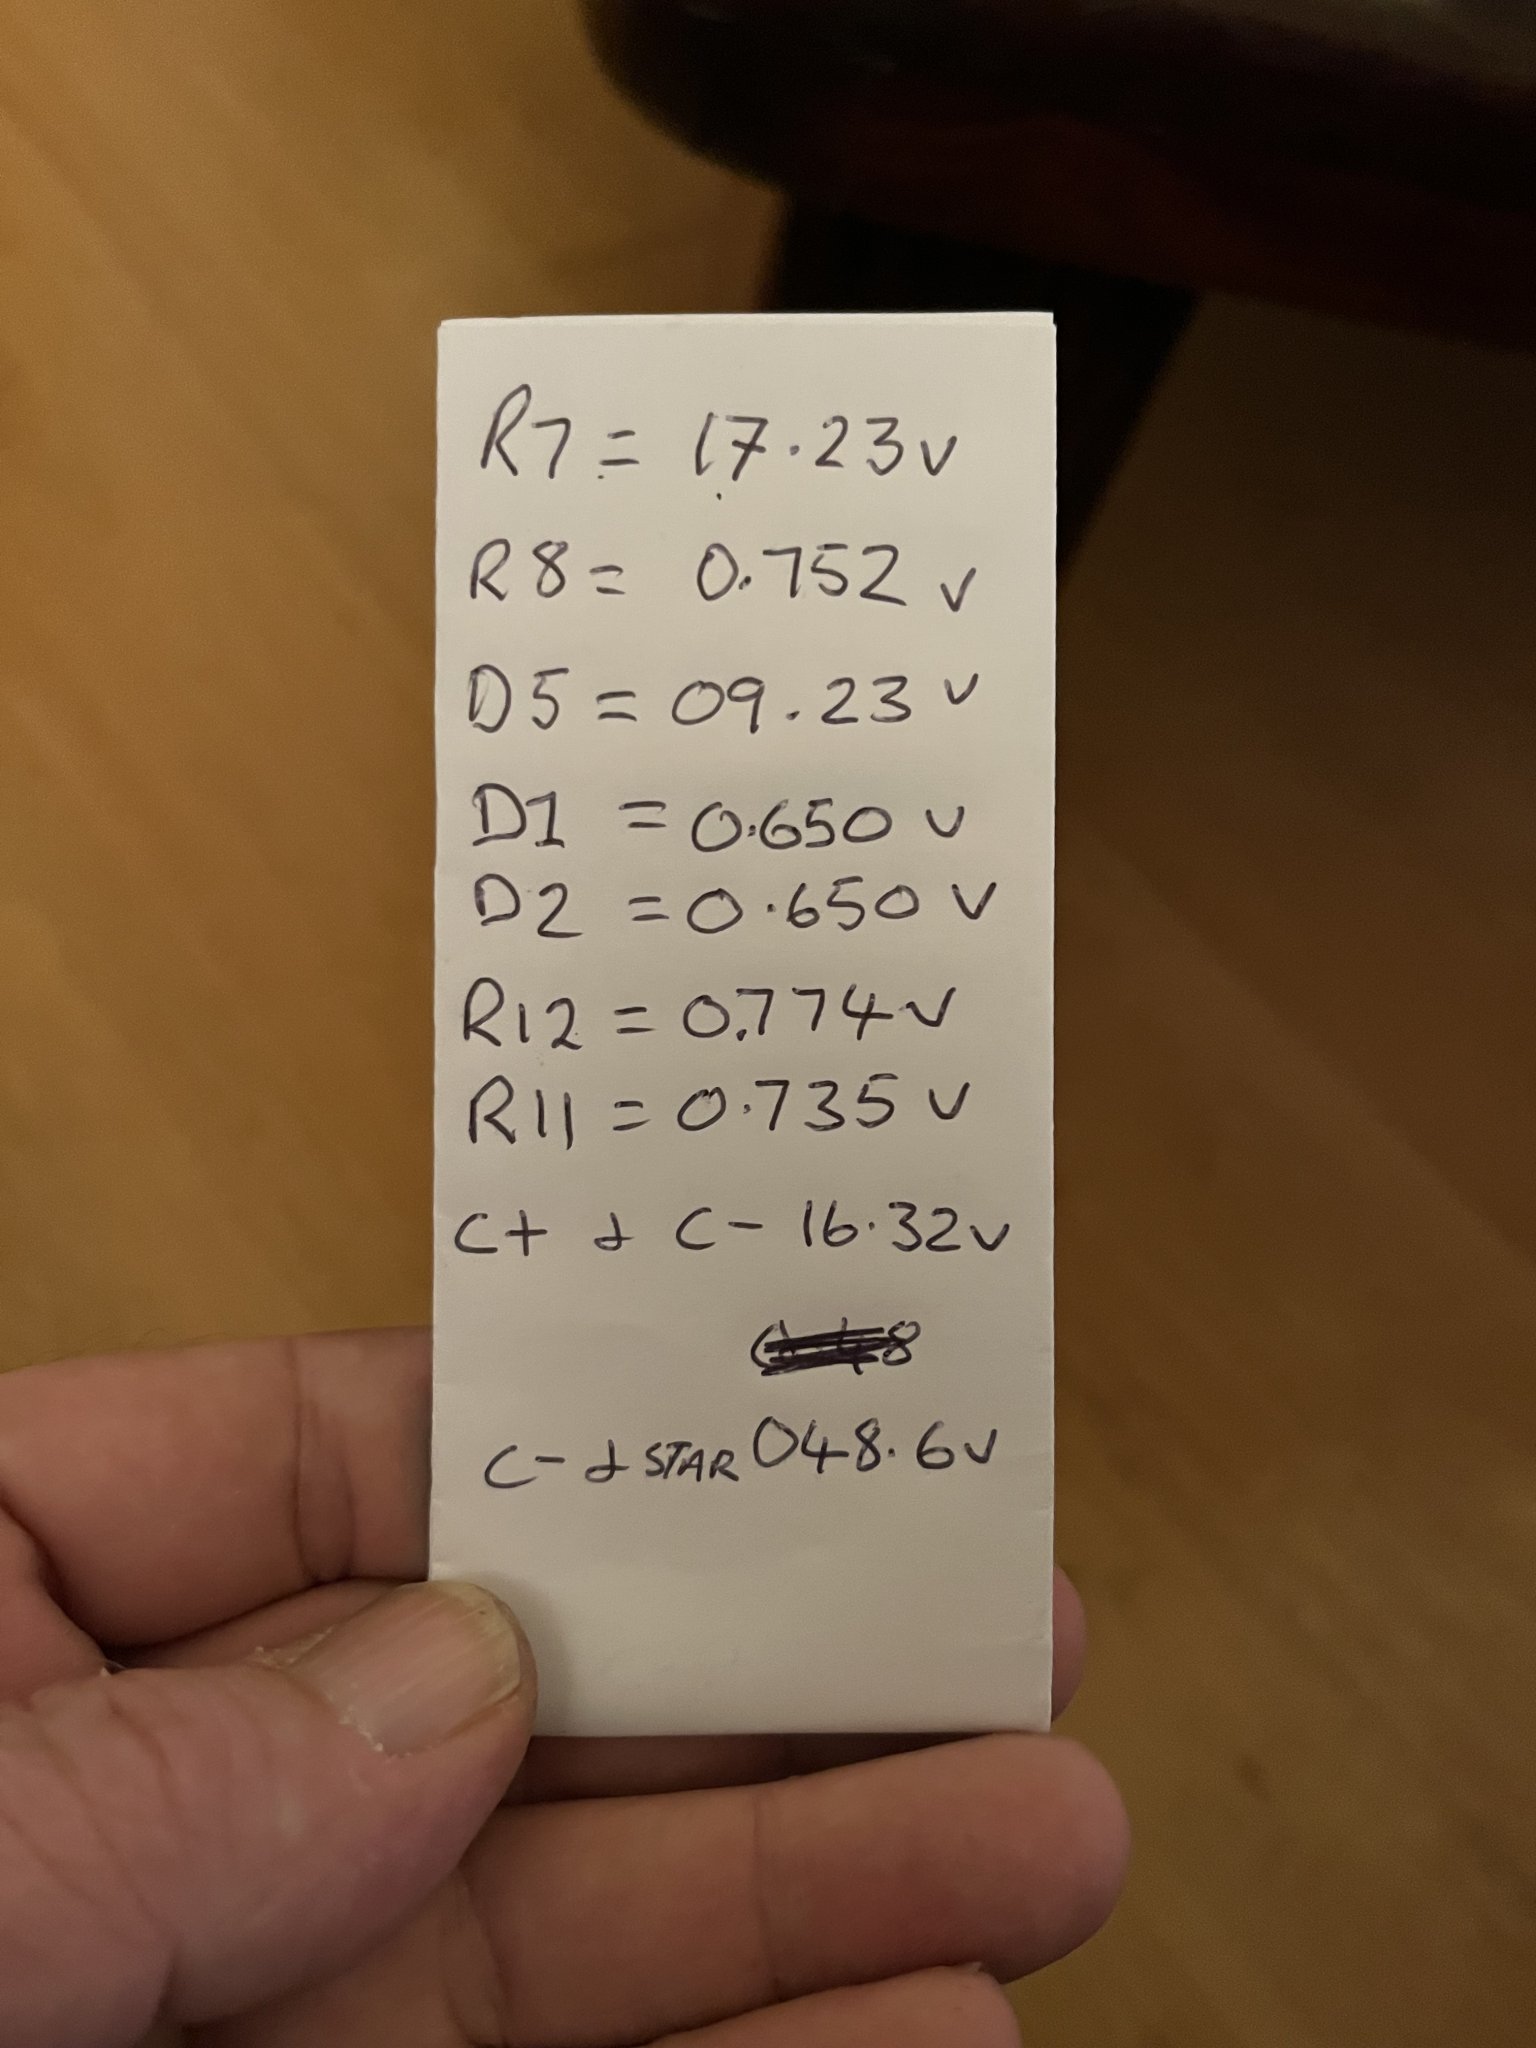 R7 = 17.23v
R8 = 0.752 v
D5 = 09.23 v
D1 = 0.650 v
D2 = 0.650 v
R12 = 0.774 v
R11 = 0.735 v
C+ & C- 16.32v
C- & STAR 048.6v